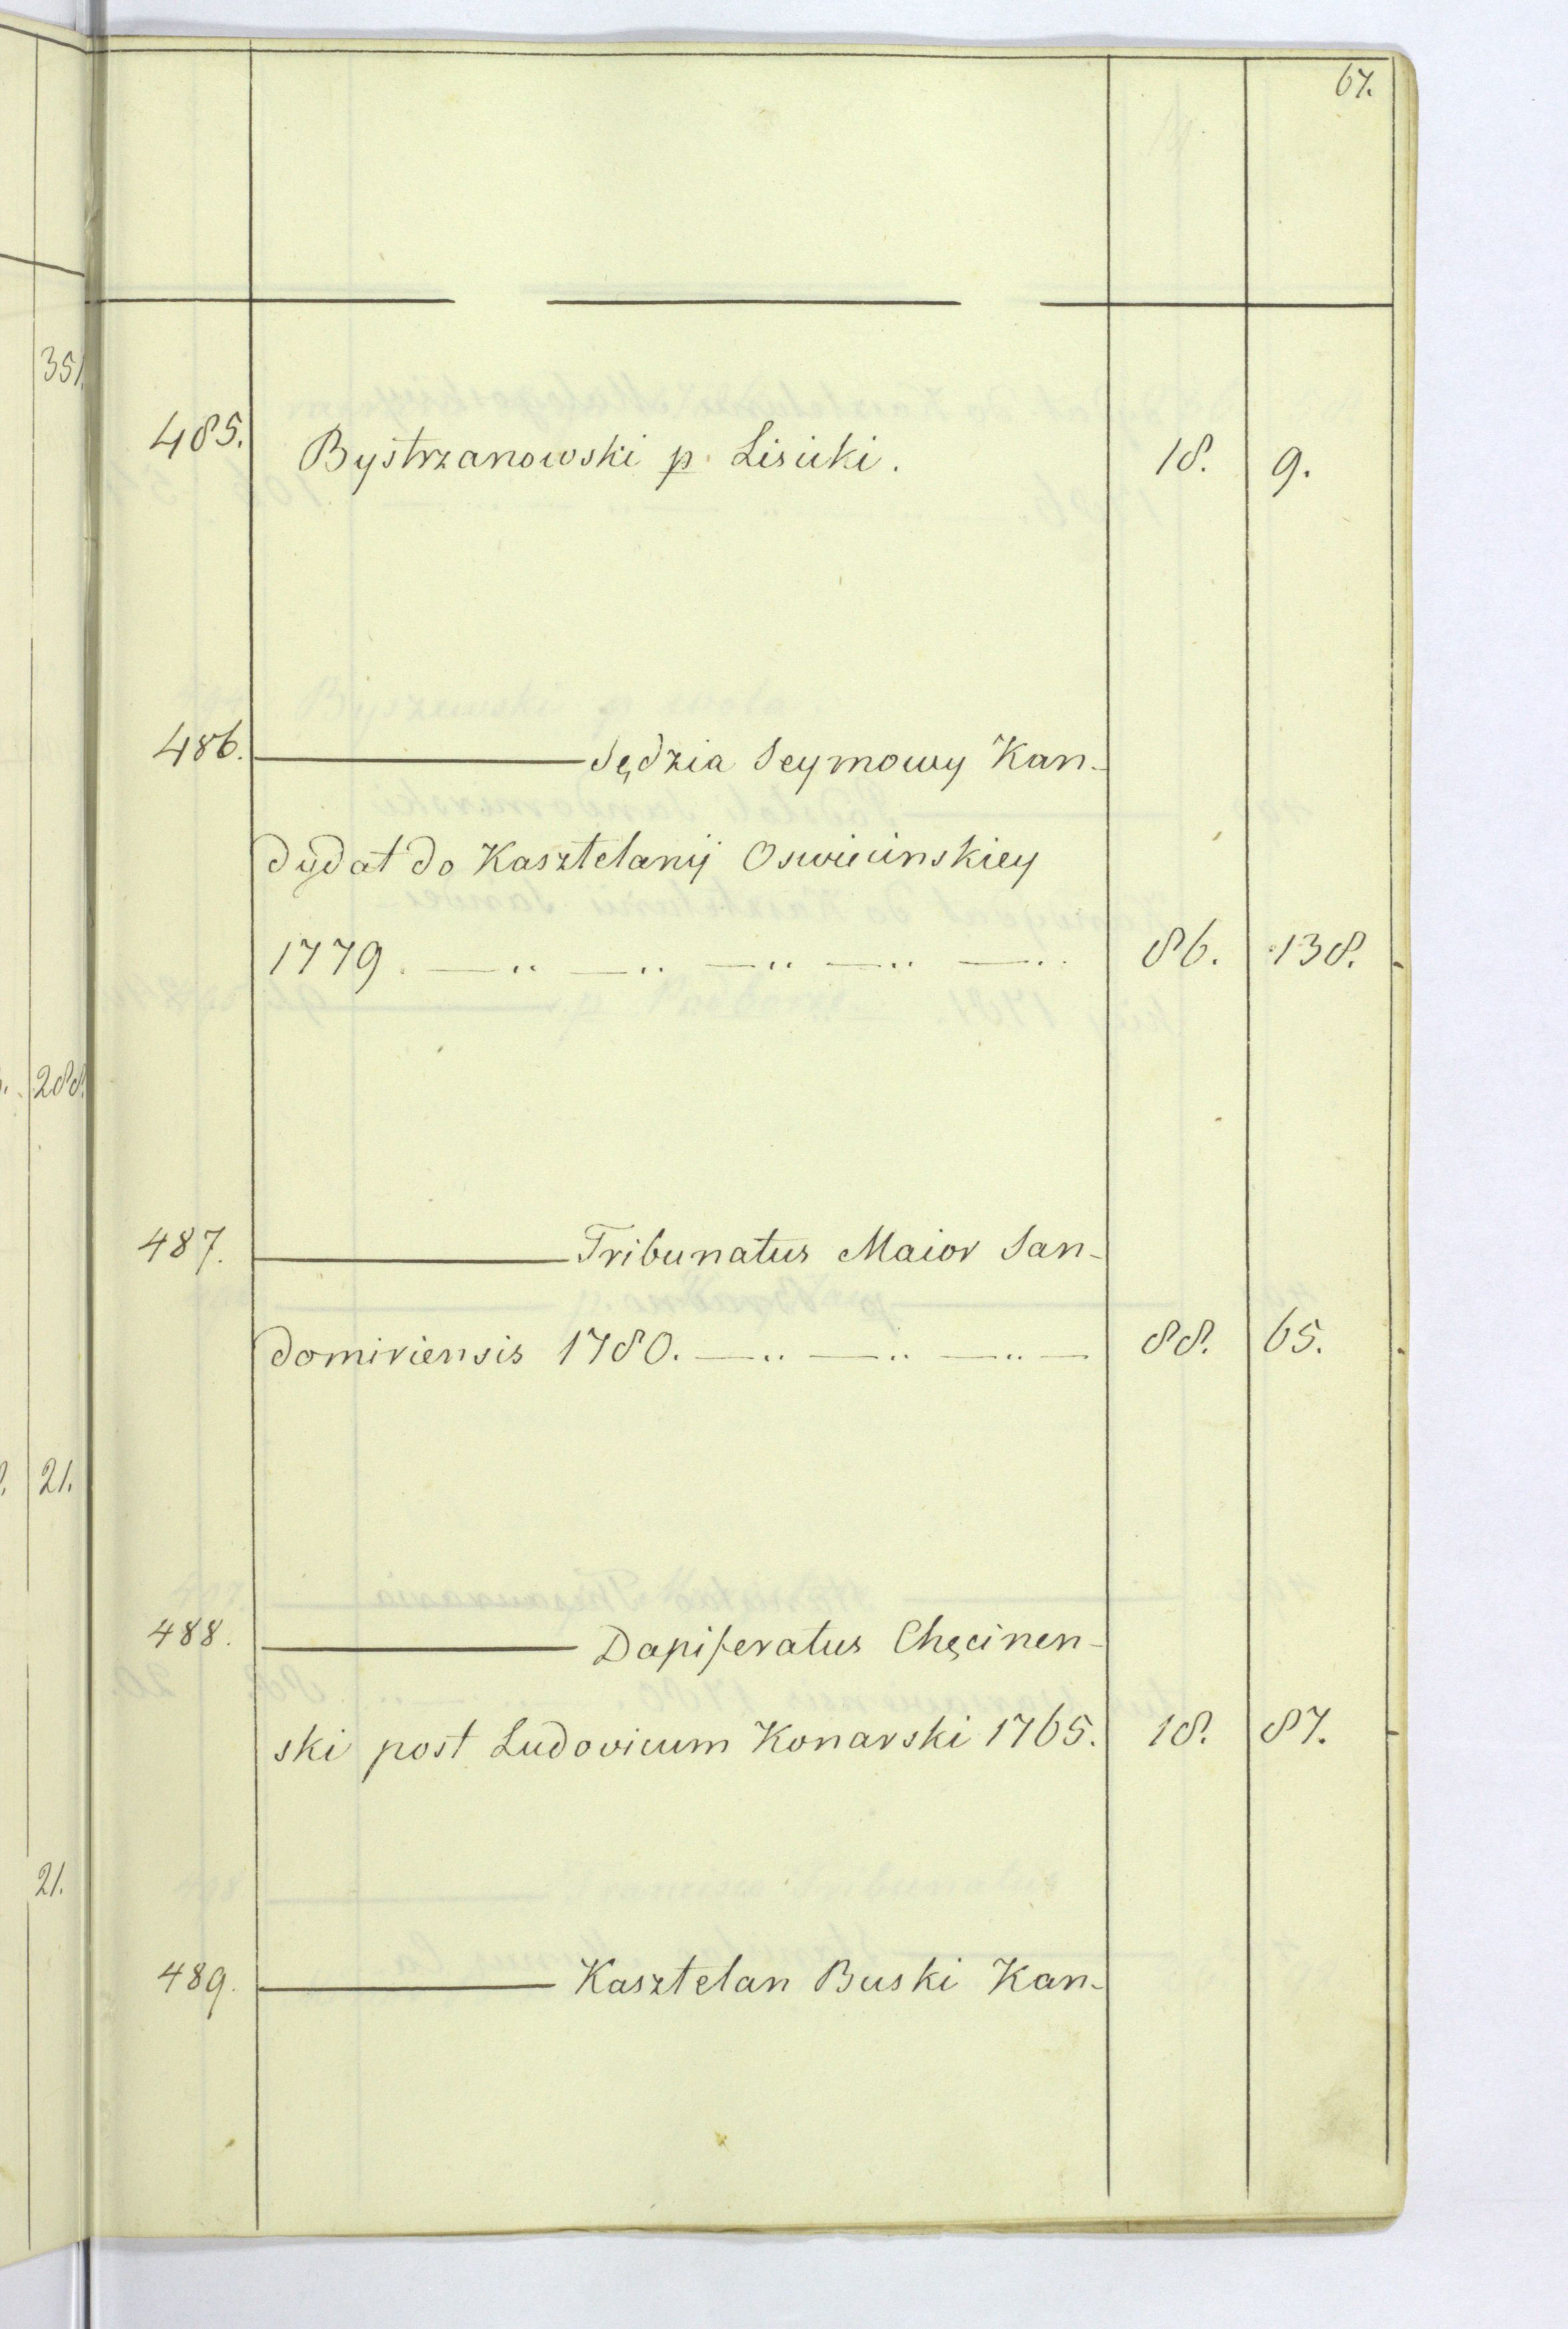 67.
351.
485. Bystrzanowski p. Lisicki. 18. 9.
486. ——— Sędzia Seymowy Kan-
dydat do Kasztelanij Oswiecinskiey
1779. — .. — .. — .. — .. — .. 86. 138.
288.
487. ——— Tribunatus Maior San-
domiriensis 1780. — .. — .. — .. — 88. 65.
21.
488. ——— Dapiferatus Chęcinen-
ski post Ludovicum Konarski 1765. 18. 87.
21.
489. ——— Kasztelan Buski Kan-